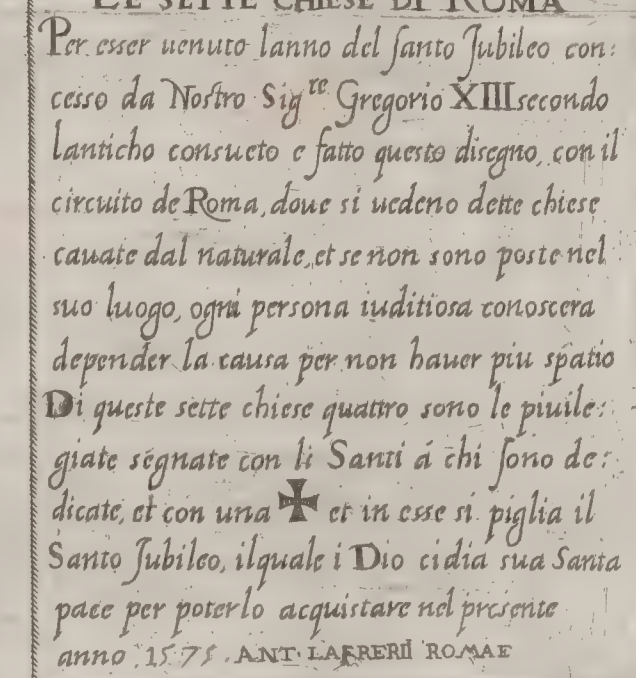 LE SETTE CHIESE DI ROMA
Per esser uenuto lanno del santo Jubileo con:
cesso da Nostro Sig.re Gregorio XIII secondo
lanticho consueto e fatto questo disegno, con il
circuito de Roma, doue si uedeno dette chiese
cauate dal naturale, et se non sono poste nel
suo luogo, ogni persona iuditiosa conoscera
depender la causa per non hauer piu spatio
Di queste sette chiese quattro sono le piuile:
giate segnate con li Santi á chi sono de:
dicate, et con una ✠ et in esse si piglia il
Santo Jubileo, ilquale i Dio ci dia sua Santa
pace per poterlo acquistare nel presente
anno 1575. ANT. LAFRERII ROMAE